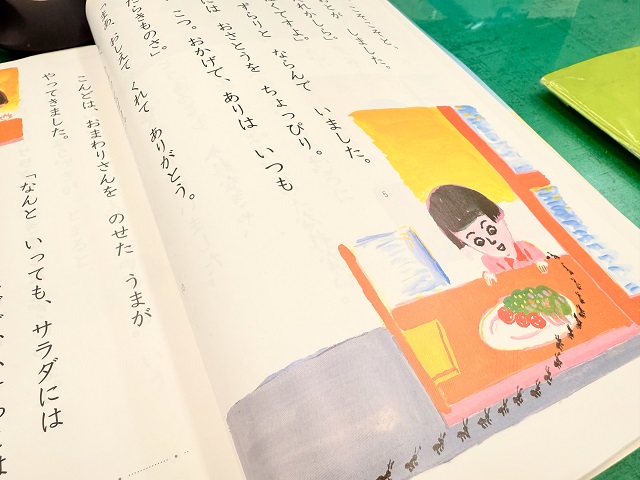 こそこそと、
とが しました。
れかしら。」
くですよ。
ずらりと ならんで いました。
には おさとうを ちょっぴり。
こつ。おかげで、ありは いつも
たらきものさ。」
「まあ、おしえて くれて ありがとう。
5
こんどは、おまわりさんを のせた うまが
やってきました。
「なんと いっても、サラダには